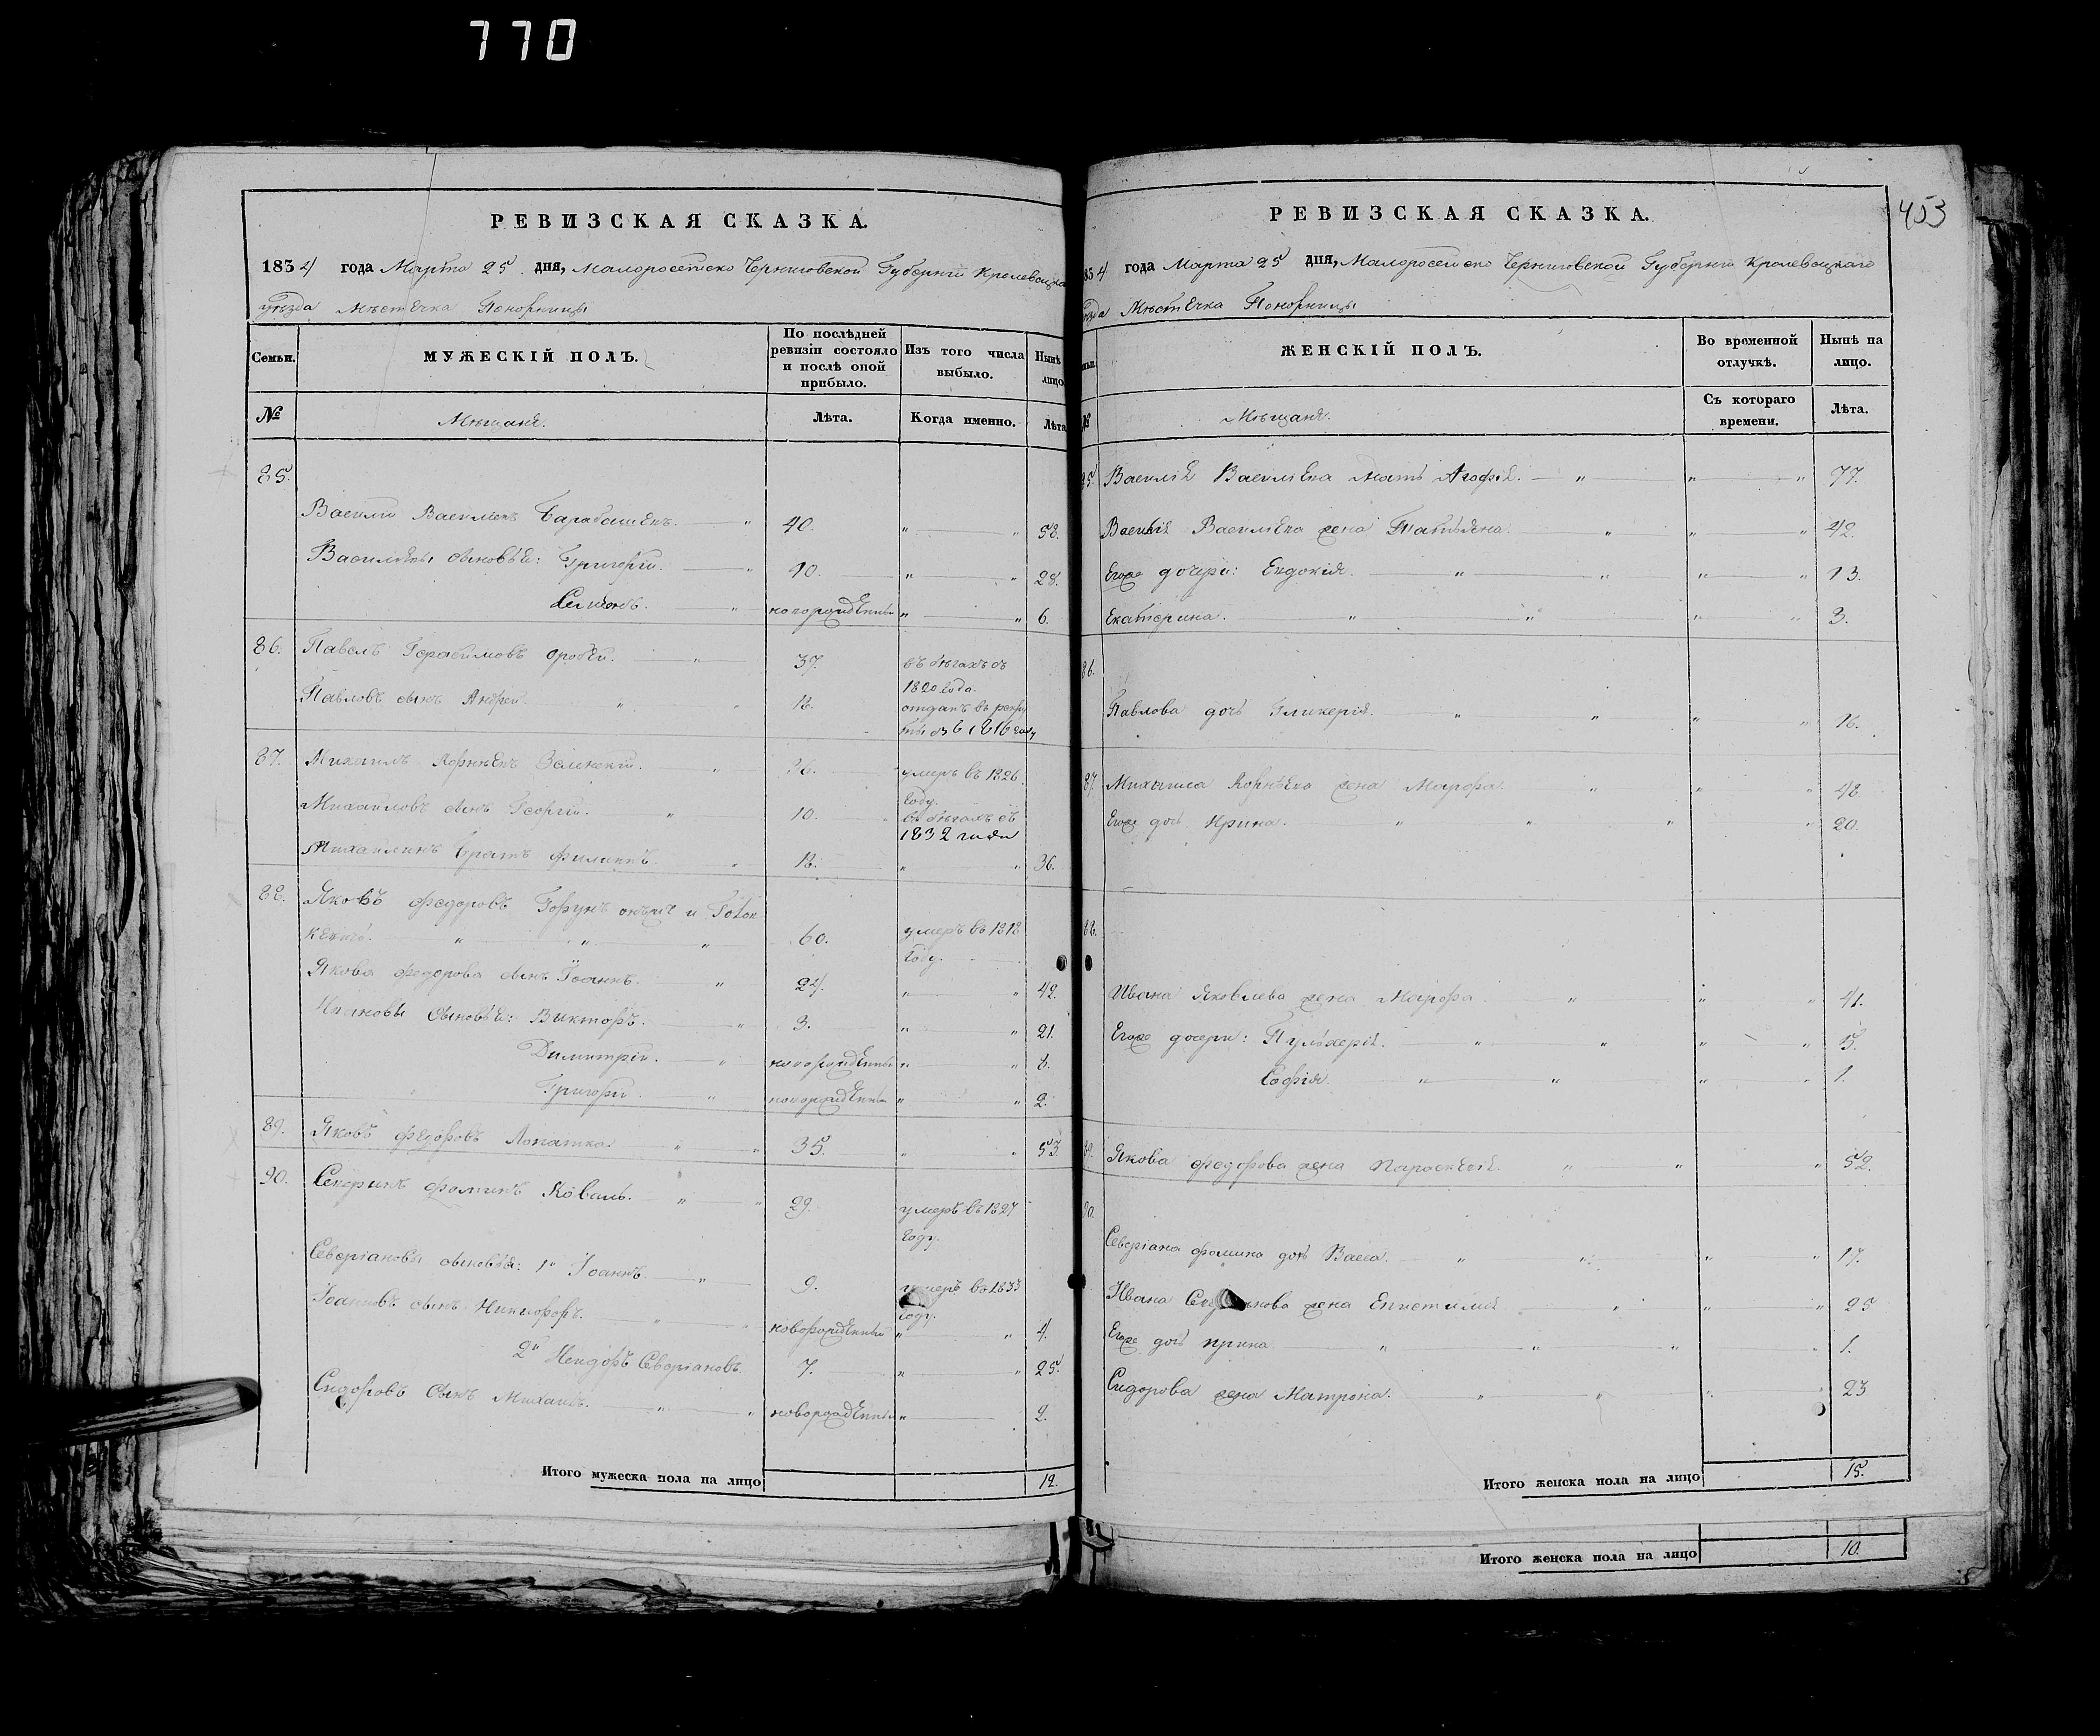 770
РЕВИЗСКАЯ СКАЗКА.
1834 года Марта 25 дня, Малоросейско Черниговской Губерніи Кролевецка
уѣзда Мѣстечка Понорницы
Семьи.
МУЖЕСКІЙ ПОЛЪ.
По послѣдней ревизіи состояло и послѣ оной прибыло.
Изъ того числа выбыло.
Нынѣ лицо
№
Мѣщаня.
Лѣта.
Когда именно.
Лѣта
85.
Василій Васильевъ 40. " " 58.
Васильевы сыновья: Григорій. " 10. " " 28.
Семенъ. " новорожденный " " 6.
86. Павелъ Герасимовъ " 37. въ бѣгахъ съ
1820 года.
Павловъ сынъ Андрей " " 18. отданъ въ рекру
ты въ 1816 году
87. Михаилъ Корнѣевъ Зеленскій. " 36. умеръ въ 1826
году.
Михайловъ сынъ Георгій. " 10. въ бѣгахъ съ
1832 года
братъ Филиппъ " 18. " " 36.
88. Яковъ Федоровъ Горунъ онъже и
" " " 60. умеръ въ 1818
году.
Якова Федорова сынъ Іоаннъ. " 24. " " 42.
Ивановы сыновья: Викторъ. " 3. " " 21.
Димитрій. " новорожденный " " 8.
Григорій " новорожденный " " 2.
89. Яковъ Федоровъ Лопатка " " 35. " " 53.
90. Северинъ Фоминъ Коваль. " " 29. умеръ въ 1827
году.
Северіановы сыновья: 1й Іоаннъ " 9. умеръ въ 1833
году.
Іоанновъ сынъ Никифоръ. " " новорожденный " " 4.
2й Исидоръ Северіановъ 7. " " 25.
Сидоровъ сынъ Михаилъ. " " новорожденный " 2.
Итого мужеска пола на лицо 12.
453
РЕВИЗСКАЯ СКАЗКА.
834 года Марта 25 дня, Малоросейско Черниговской Губерніи Кролевецкаго
уѣзда Мѣстечка Понорницы
ЖЕНСКІЙ ПОЛЪ.
Во временной отлучкѣ.
Нынѣ на лицо.
Мѣщаня.
Съ котораго времени.
Лѣта.
85. Василія Васильева мать Агафія. " " " 77.
Василія Васильева жена Татьяна. " " " 42.
Егоже дочери: Евдокія. " " " " 13.
Екатерина. " " " " 3.
86.
Павлова дочь Гликерія. " " " " 16.
87. Михаила Корнѣева жена Марфа. " " " 48
Егоже дочь Ирина. " " " " 20.
88.
Ивана Яковлева жена Марфа " " " 41.
Егоже дочери: Пульхерія. " " " " 15.
Софія. " " " " 1.
89. Якова Федорова жена Параскевія. " " " 52.
90.
Северіана Фомина дочь Васса. " " " " 17.
Ивана жена Епистимія " " " 25
Егоже дочь Ирина " " " " 1.
Сидорова жена Матрона. " " " " 23
Итого женска пола на лицо 15.
Итого женска пола на лицо 10.